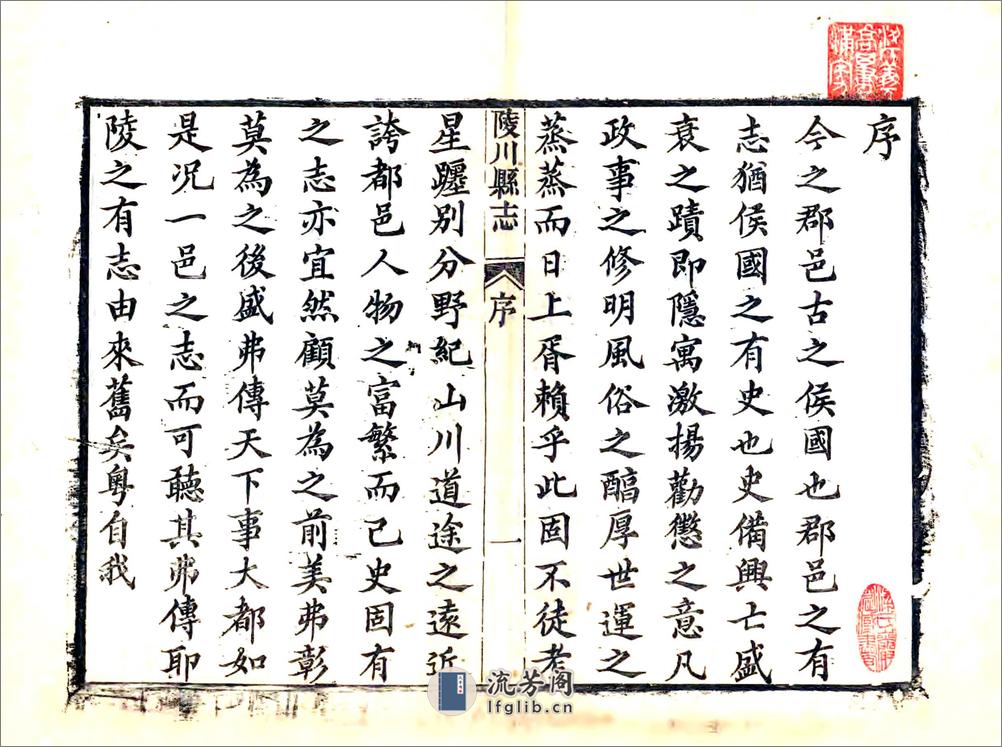 序
今之郡邑古之侯國也郡邑之有
志猶侯國之有史也史備興亡盛
衰之蹟即隱寓激揚勸懲之意凡
政事之修明風俗之醕厚世運之
蒸蒸而日上胥賴乎此固不徒考
陵川縣志 序 一
星躔別分野紀山川道途之遠近
誇都邑人物之富繁而已史固有
之志亦宜然顧莫為之前美弗彰
莫為之後盛弗傳天下事大都如
是况一邑之志而可聽其弗傳耶
陵之有志由來舊矣粵自我
流芳阁
lfglib.cn